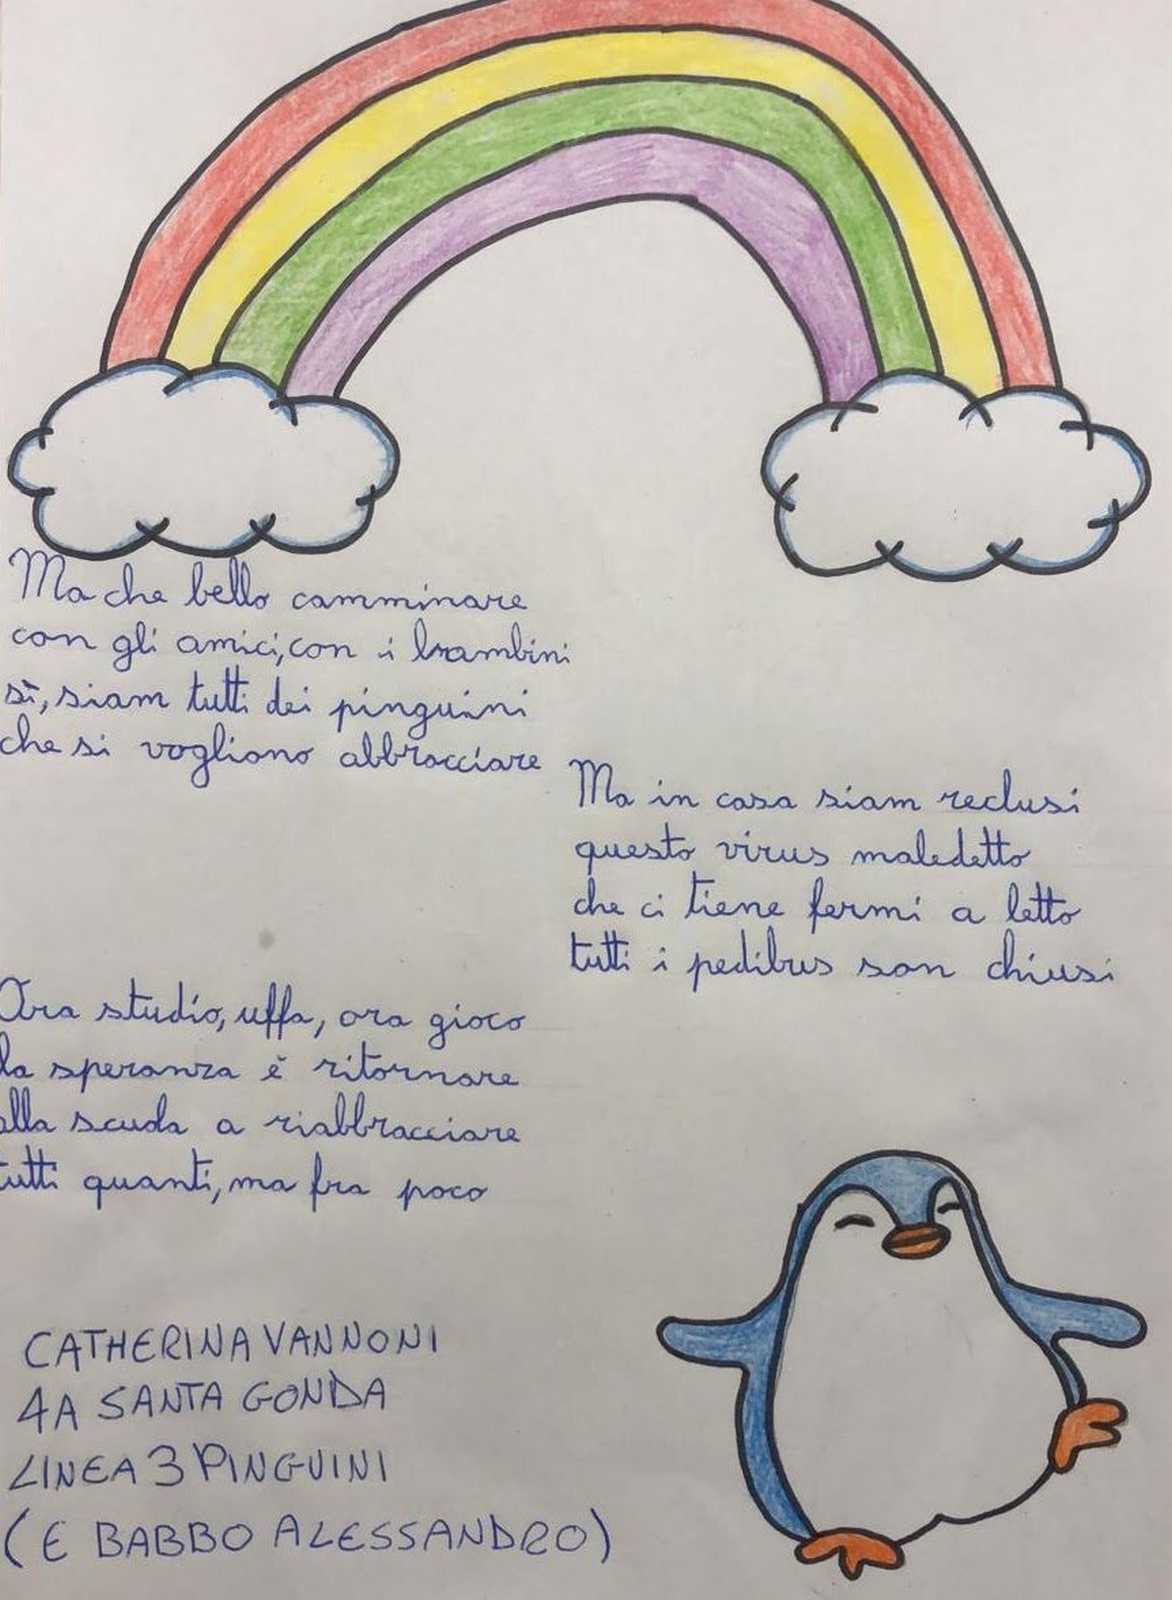 Ma che bello camminare
con gli amici, con i bambini
sì, siam tutti dei pinguini
che si vogliono abbracciare
Ma in casa siam reclusi
questo virus maledetto
che ci tiene fermi a letto
tutti i pedibus son chiusi
Ora studio, uffa, ora gioco
la speranza è ritornare
alla scuola a riabbracciare
tutti quanti, ma fra poco
CATHERINA VANNONI
4A SANTA GONDA
LINEA 3 PINGUINI
(E BABBO ALESSANDRO)